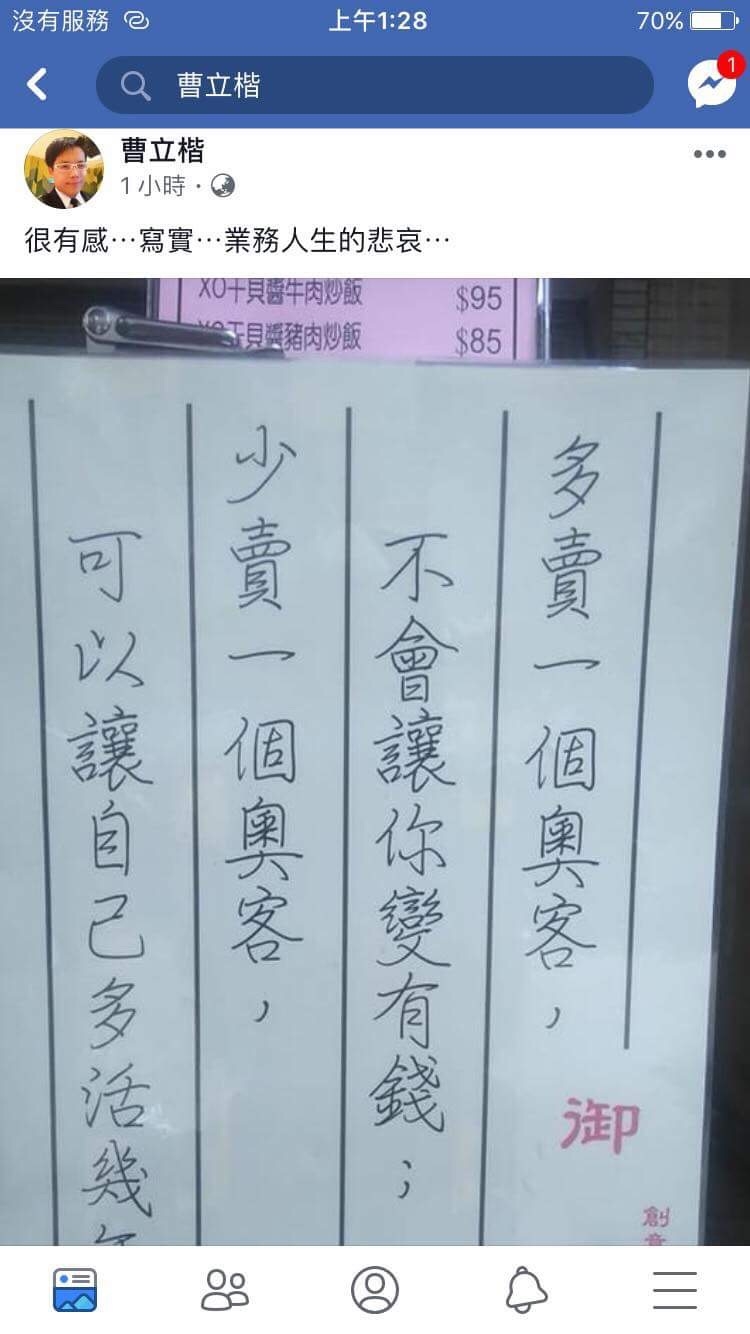 沒有服務
上午1:28
70%
曹立楷
1
曹立楷
1 小時
很有感⋯寫實⋯業務人生的悲哀⋯
XO干貝醬牛肉炒飯 $95
XO干貝醬豬肉炒飯 $85
多賣一個奧客，
不會讓你變有錢；
少賣一個奧客，
可以讓自己多活幾
御
創意